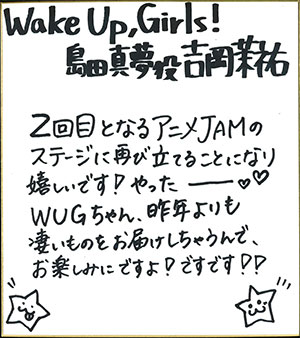 Wake Up, Girls!
島田真夢役 吉岡茉祐
2回目となるアニメJAMの
ステージに再び立てることになり
嬉しいです！やったーー♡♡
WUGちゃん、昨年よりも
凄いものをお届けしちゃうんで、
お楽しみにですよ！ですです！！